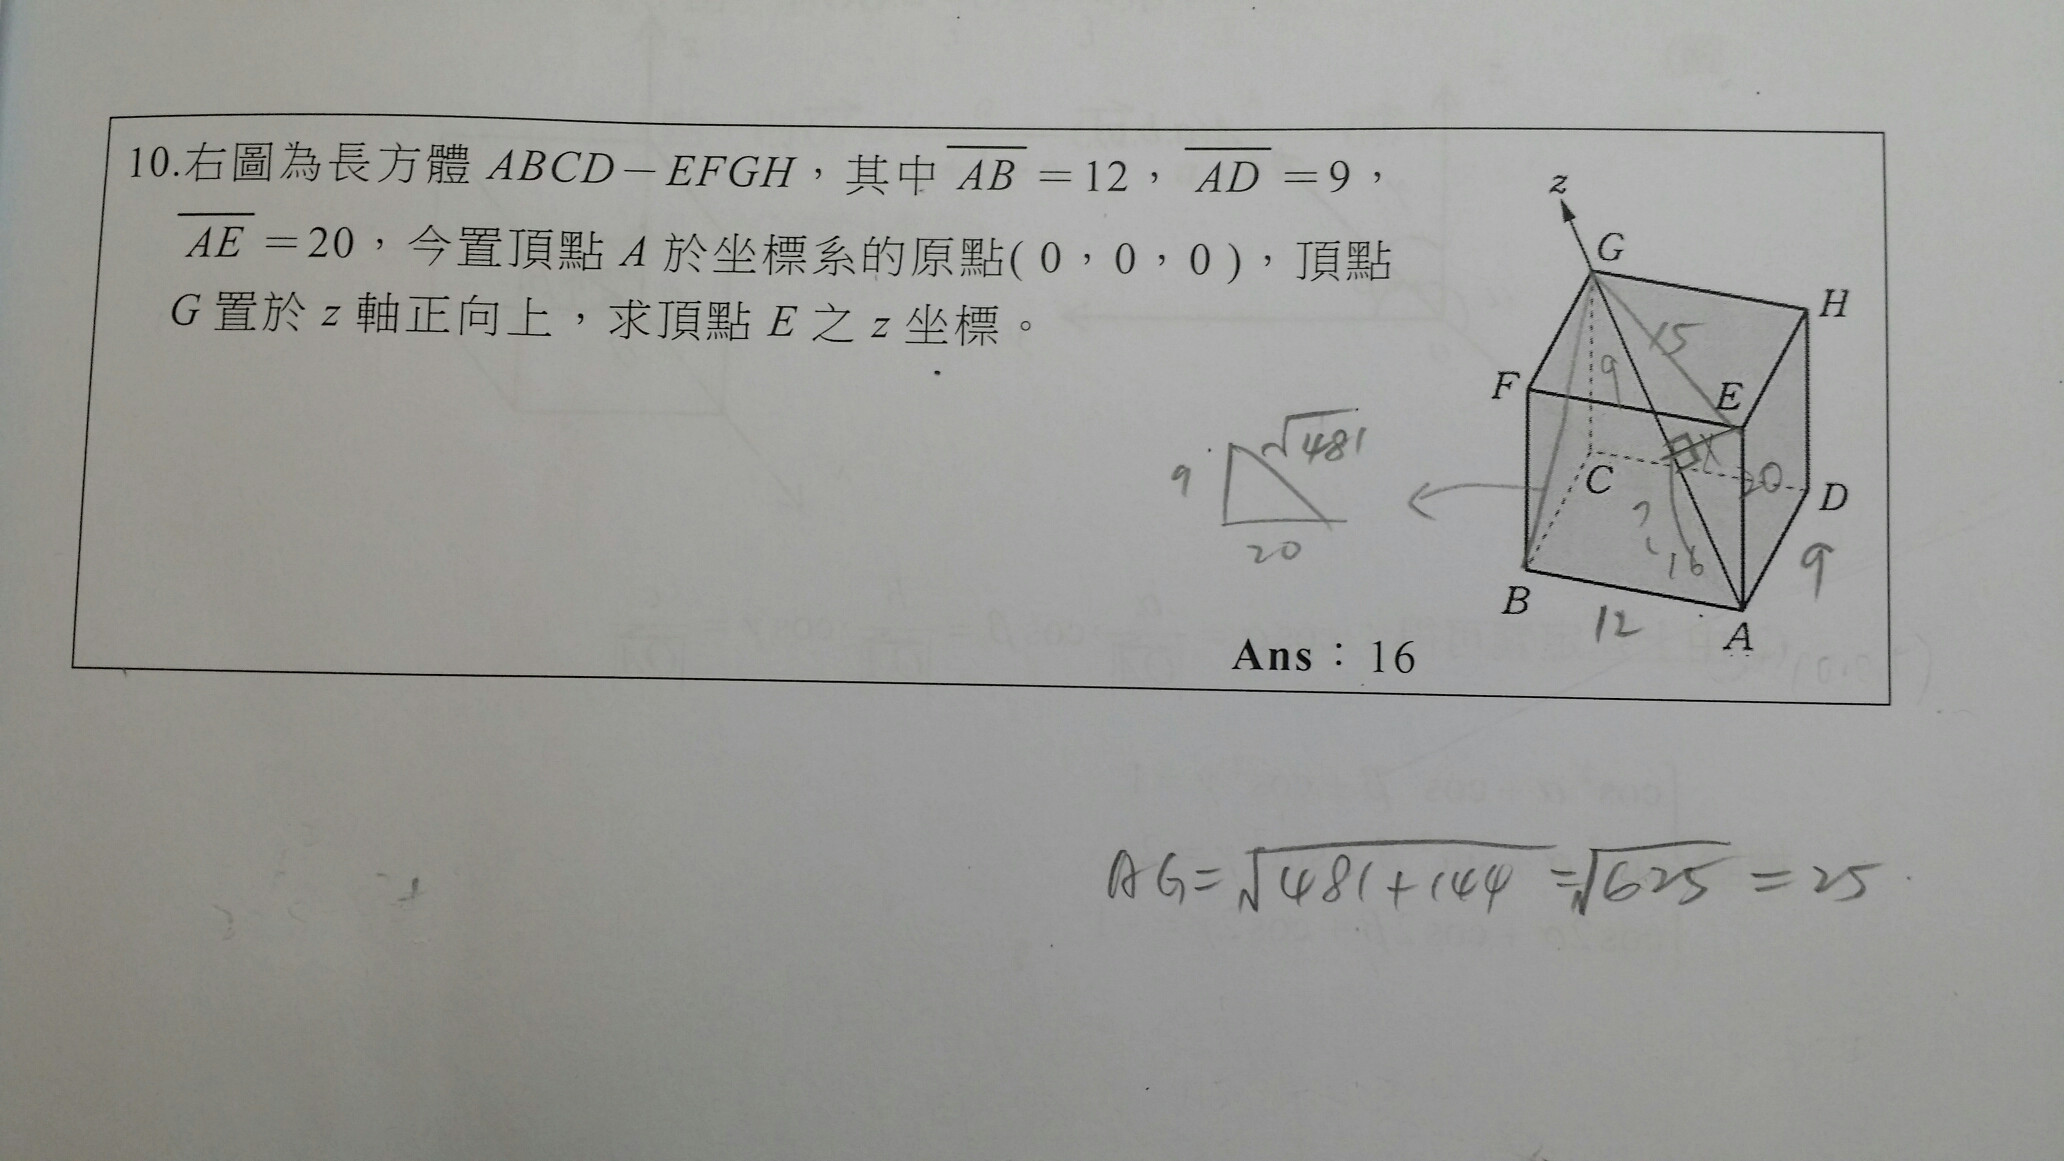 10.右圖為長方體 ABCD－EFGH，其中 AB =12， AD =9，
AE =20，今置頂點 A 於坐標系的原點( 0，0，0 )，頂點
G 置於 z 軸正向上，求頂點 E 之 z 坐標。
z
G
H
15
9
F
E
x
√481
9
20
C
20
D
?
16
9
B
12
A
Ans：16
AG=√481+144 =√625 =25